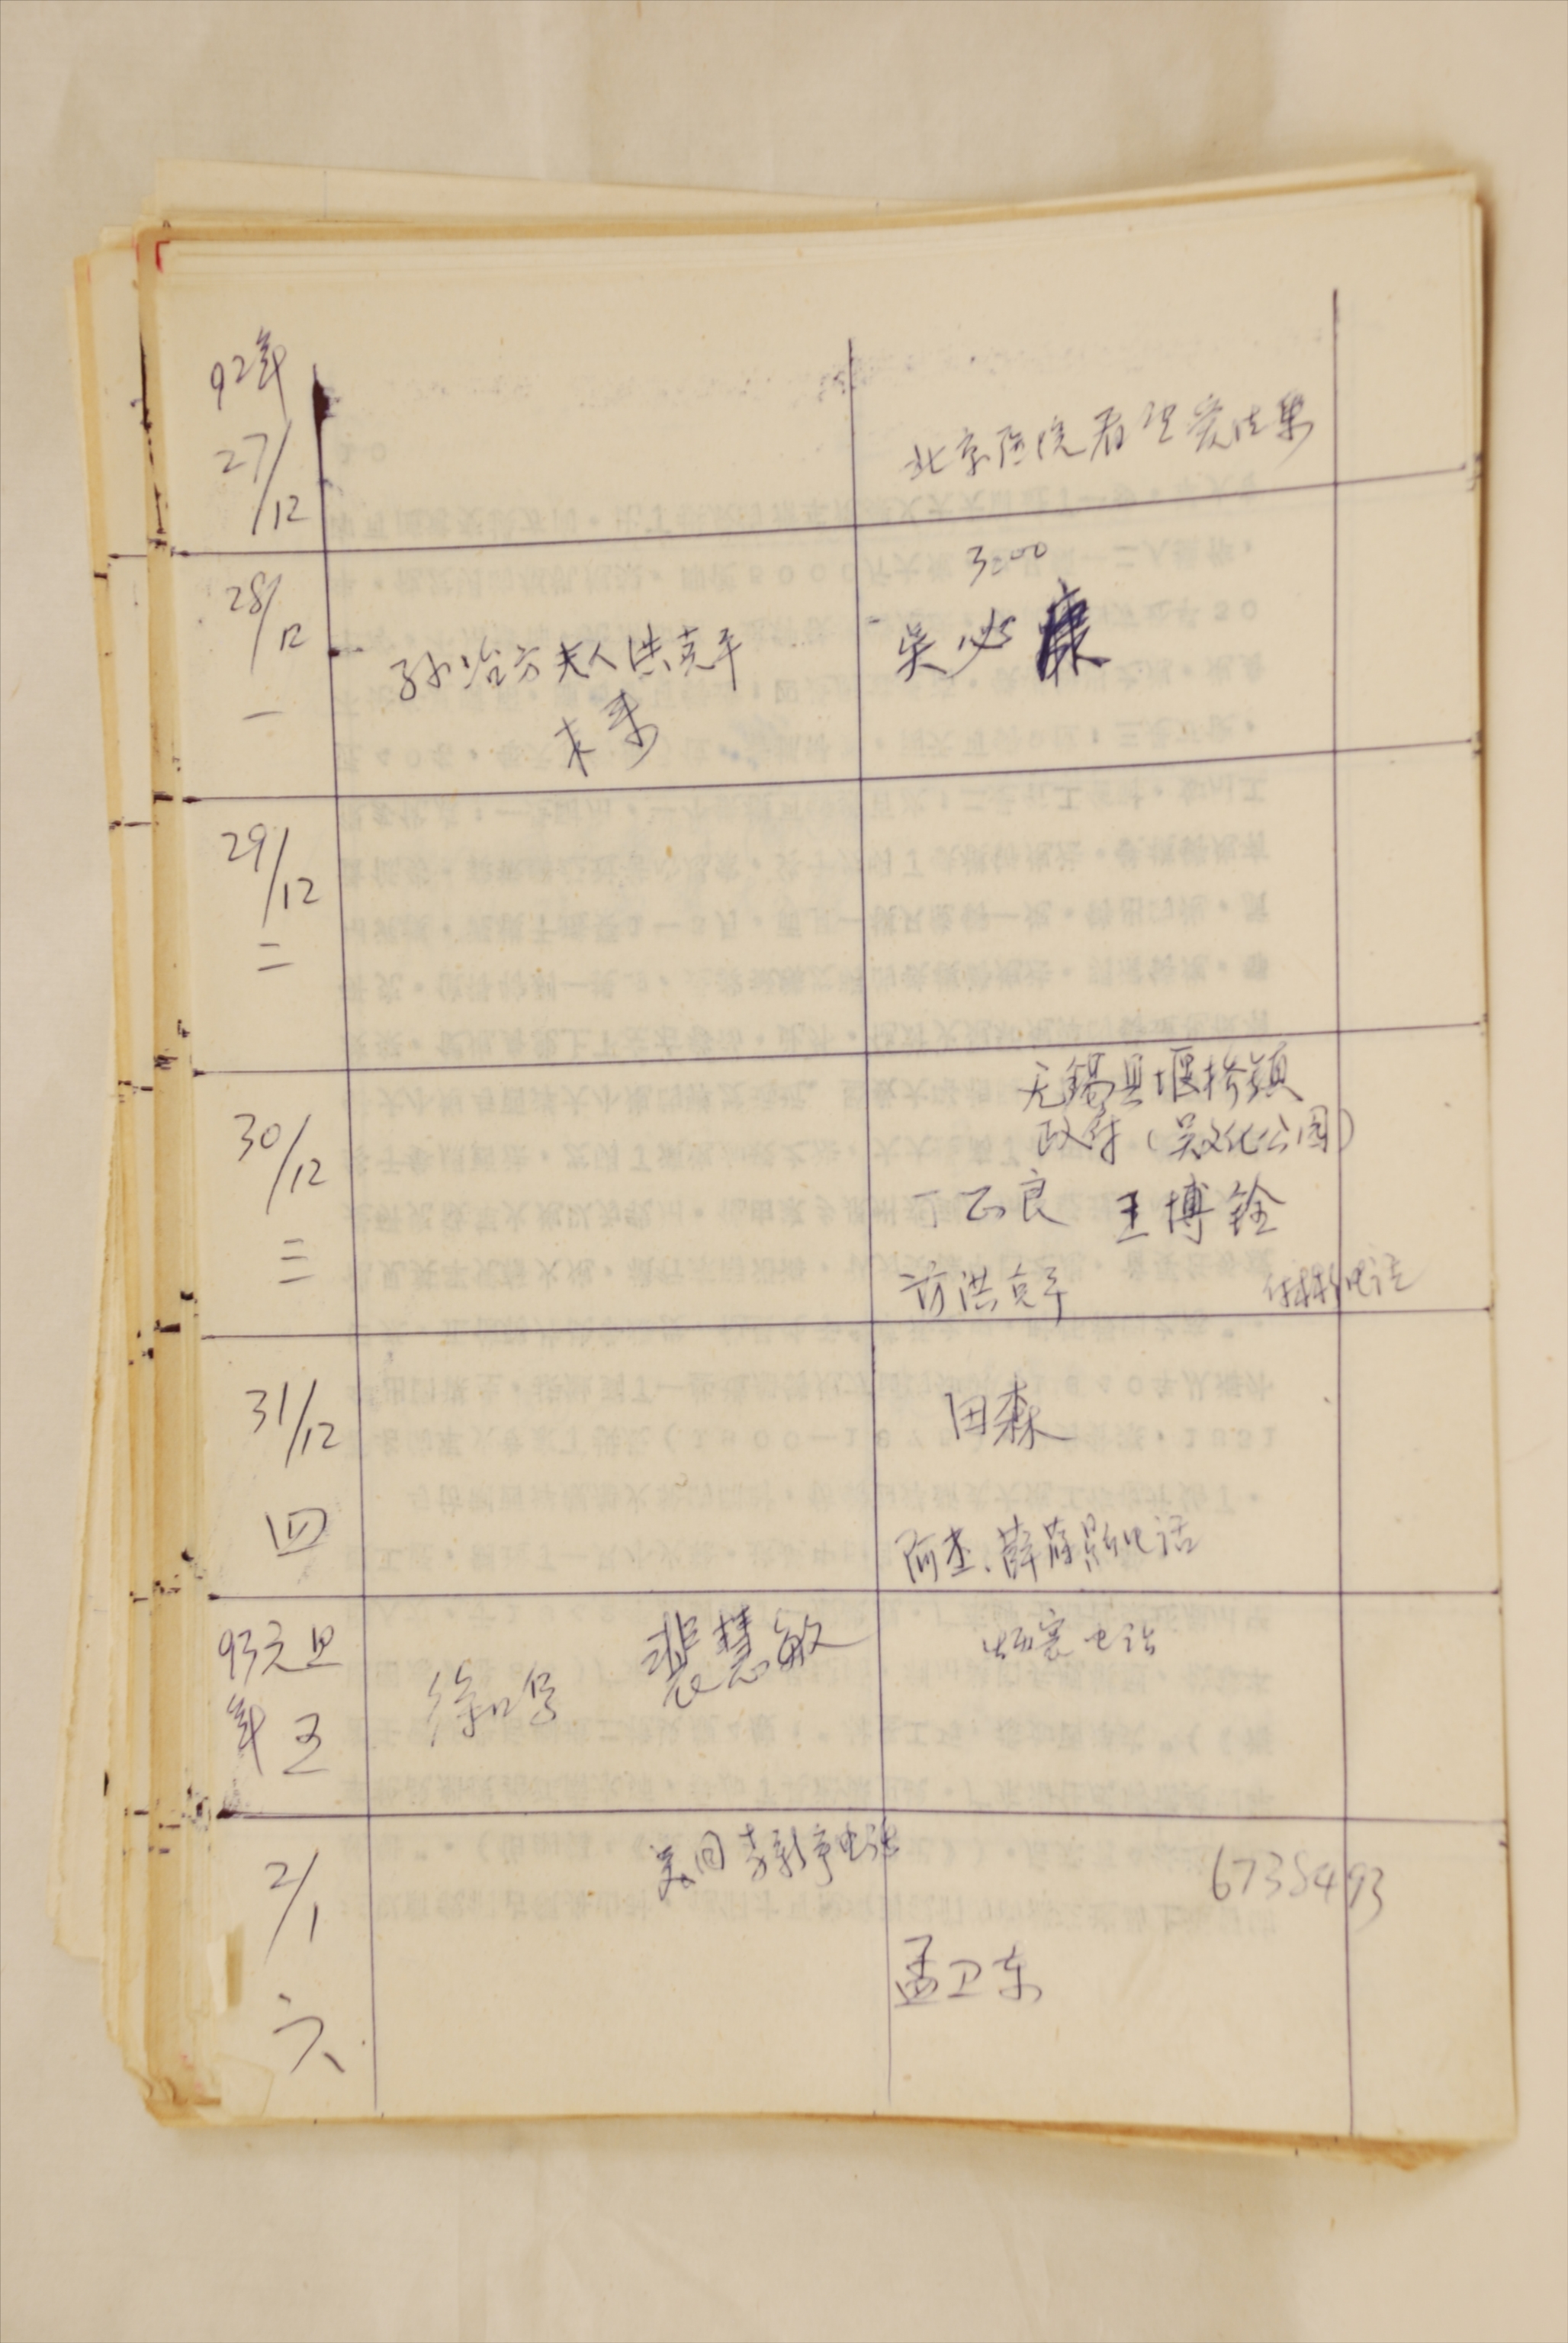 92年
27/12
北京医院看 结果
28/12
一
孙冶方夫人洪克平
未来
3:00
吴必康
29/12
二
30/12
三
无锡县堰桥镇
政府(吴文化公园)
丁正良 王博铨
访洪克平
电话
31/12
四
田森
阿杰、薛 电话
93元旦
年 五
徐鸣
裴慧敏
电话
2/1
六
美国李新 电话
6738493
孟卫东